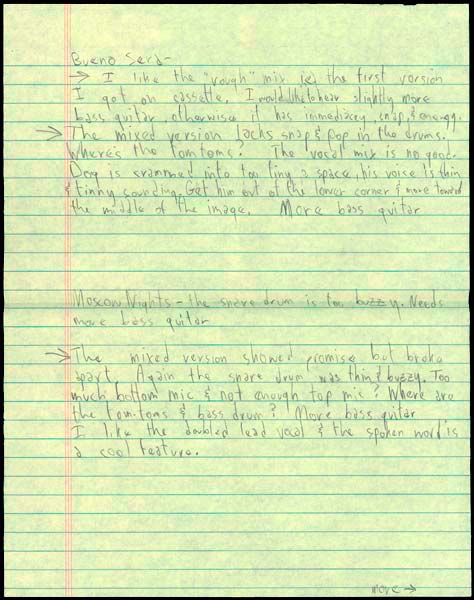 Bueno Sera-
→ I like the "rough" mix ie) the first version
I got on cassette. I would like to hear slightly more
bass guitar, otherwise it has immediacy, snap, & energy.
→ The mixed version lacks snap & pop in the drums.
Where's the tomtoms? The vocal mix is no good.
Dog is crammed into too tiny a space, his voice is thin
& tinny sounding. Get him out of the lower corner & more toward
the middle of the image. More bass guitar
Moscow Nights - the snare drum is too buzzy. Needs
more bass guitar
→ The mixed version showed promise but broke
apart. Again the snare drum was thin & buzzy. Too
much bottom mic & not enough top mic? Where are
the tom-toms & bass drum? More bass guitar
I like the doubled lead vocal & the spoken word is
a cool feature.
more →